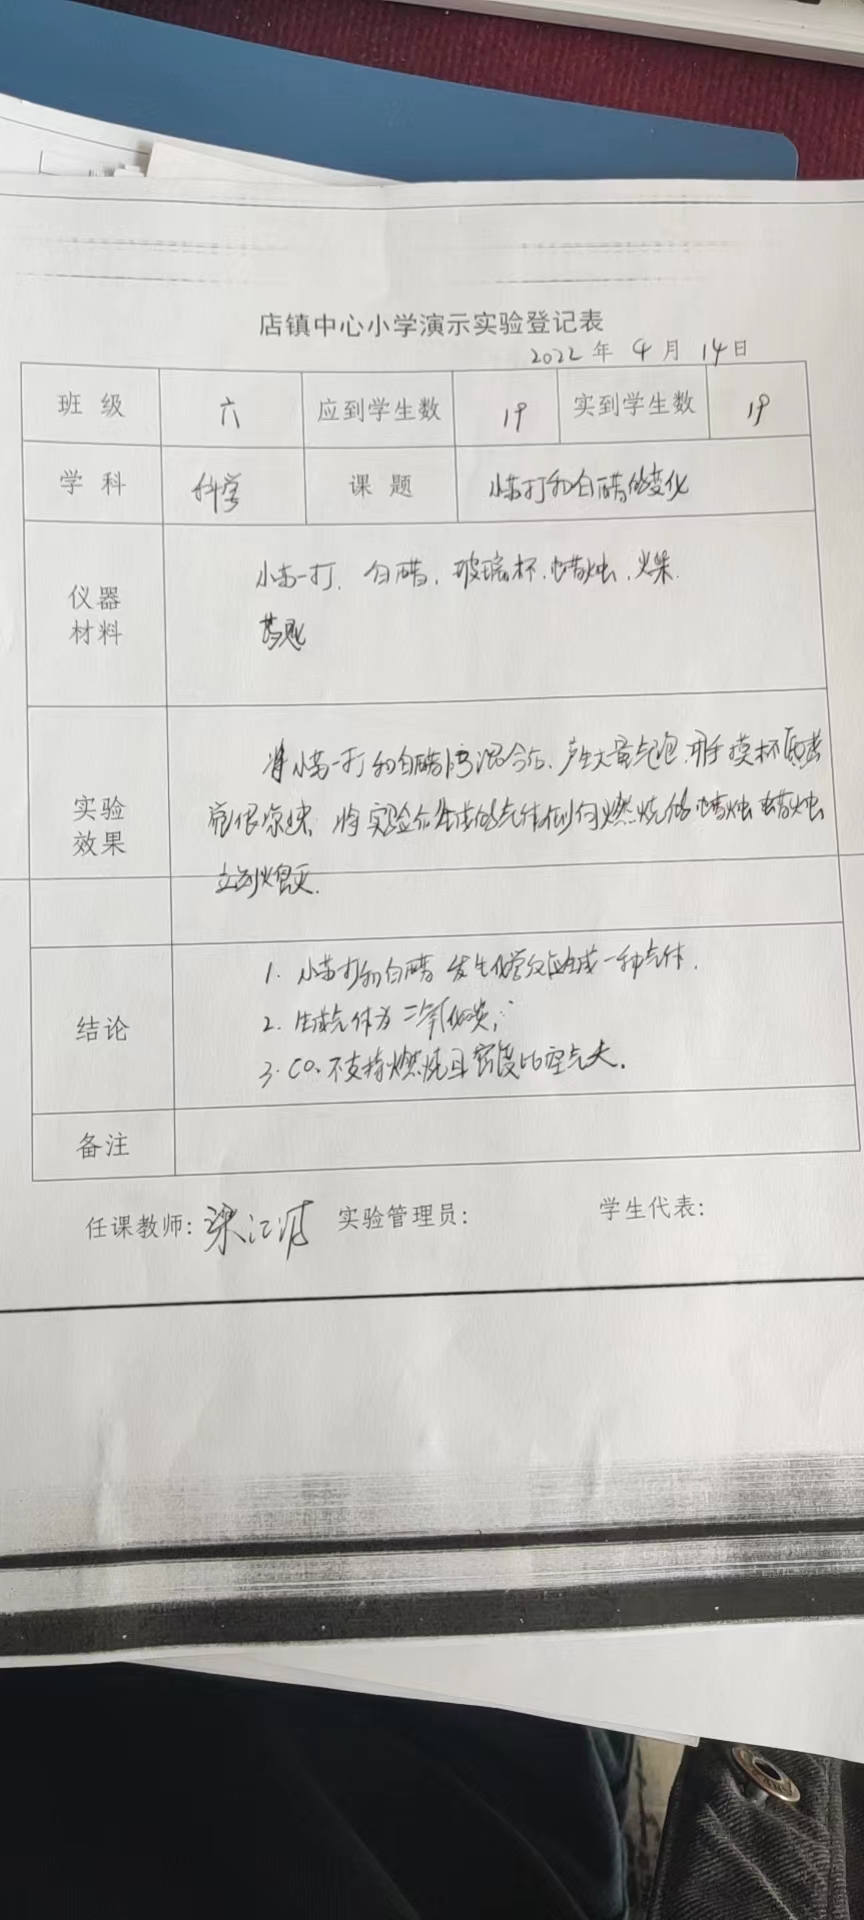 店镇中心小学演示实验登记表
2022年 4月 14日
班 级 六 应到学生数 19 实到学生数 19
学 科 科学 课 题 小苏打和白醋的变化
仪器
材料
小苏打、白醋、玻璃杯、蜡烛、火柴
药匙
实验
效果
将小苏打和白醋混合后、产生大量气泡、用手摸杯
将实验后生成的气体倒向燃烧的蜡烛 蜡烛
立刻熄灭.
结论
1. 小苏打和白醋发生化学反应生成一种气体.
2. 生成气体为二氧化碳;
3. CO₂不支持燃烧且密度比空气大.
备注
任课教师: 梁江 实验管理员: 学生代表: